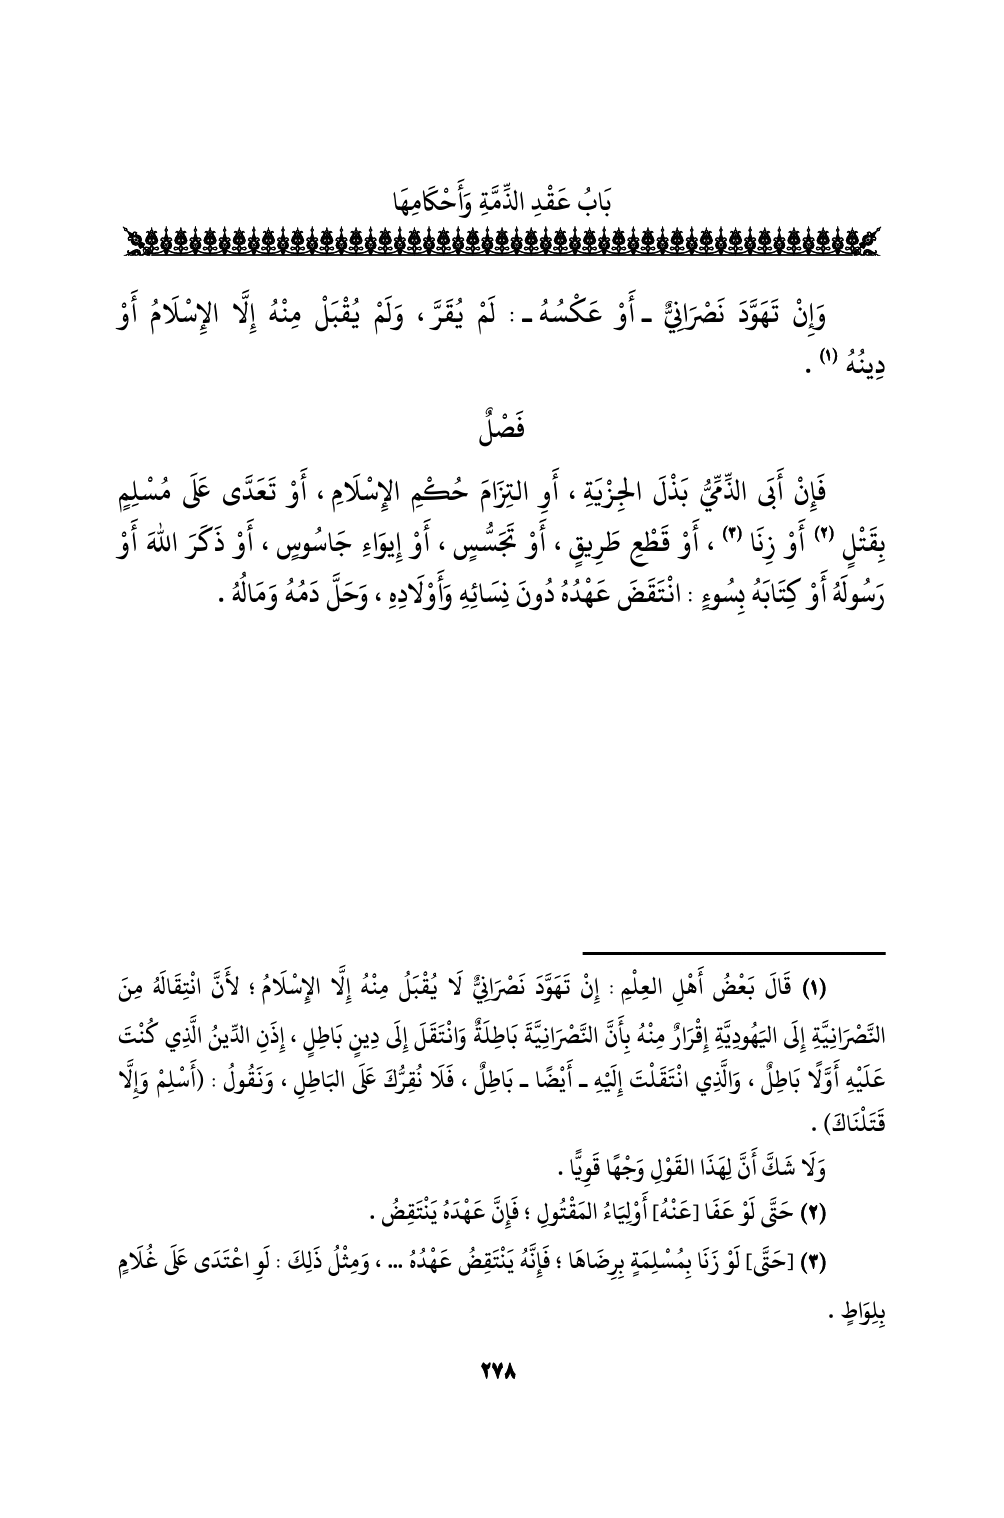 بَابُ عَقْدِ الذِّمَّةِ وَأَحْكَامِهَا
وَإِنْ تَهَوَّدَ نَصْرَانِيٌّ ـ أَوْ عَكْسُهُ ـ : لَمْ يُقَرَّ ، وَلَمْ يُقْبَلْ مِنْهُ إِلَّا الإِسْلَامُ أَوْ
دِينُهُ (١) .
فَصْلٌ
فَإِنْ أَبَى الذِّمِّيُّ بَذْلَ الجِزْيَةِ ، أَوِ التِزَامَ حُكْمِ الإِسْلَامِ ، أَوْ تَعَدَّى عَلَى مُسْلِمٍ
بِقَتْلٍ (٢) أَوْ زِنَا (٣) ، أَوْ قَطْعِ طَرِيقٍ ، أَوْ تَجَسُّسٍ ، أَوْ إِيوَاءِ جَاسُوسٍ ، أَوْ ذَكَرَ اللهَ أَوْ
رَسُولَهُ أَوْ كِتَابَهُ بِسُوءٍ : انْتَقَضَ عَهْدُهُ دُونَ نِسَائِهِ وَأَوْلَادِهِ ، وَحَلَّ دَمُهُ وَمَالُهُ .
(١) قَالَ بَعْضُ أَهْلِ العِلْمِ : إِنْ تَهَوَّدَ نَصْرَانِيٌّ لَا يُقْبَلُ مِنْهُ إِلَّا الإِسْلَامُ ؛ لأَنَّ انْتِقَالَهُ مِنَ
النَّصْرَانِيَّةِ إِلَى اليَهُودِيَّةِ إِقْرَارٌ مِنْهُ بِأَنَّ النَّصْرَانِيَّةَ بَاطِلَةٌ وَانْتَقَلَ إِلَى دِينٍ بَاطِلٍ ، إِذَنِ الدِّينُ الَّذِي كُنْتَ
عَلَيْهِ أَوَّلًا بَاطِلٌ ، وَالَّذِي انْتَقَلْتَ إِلَيْهِ ـ أَيْضًا ـ بَاطِلٌ ، فَلَا نُقِرُّكَ عَلَى البَاطِلِ ، وَنَقُولُ : (أَسْلِمْ وَإِلَّا
قَتَلْنَاكَ) .
وَلَا شَكَّ أَنَّ لِهَذَا القَوْلِ وَجْهًا قَوِيًّا .
(٢) حَتَّى لَوْ عَفَا [عَنْهُ] أَوْلِيَاءُ المَقْتُولِ ؛ فَإِنَّ عَهْدَهُ يَنْتَقِضُ .
(٣) [حَتَّى] لَوْ زَنَا بِمُسْلِمَةٍ بِرِضَاهَا ؛ فَإِنَّهُ يَنْتَقِضُ عَهْدُهُ ... ، وَمِثْلُ ذَلِكَ : لَوِ اعْتَدَى عَلَى غُلَامٍ
بِلِوَاطٍ .
٢٧٨